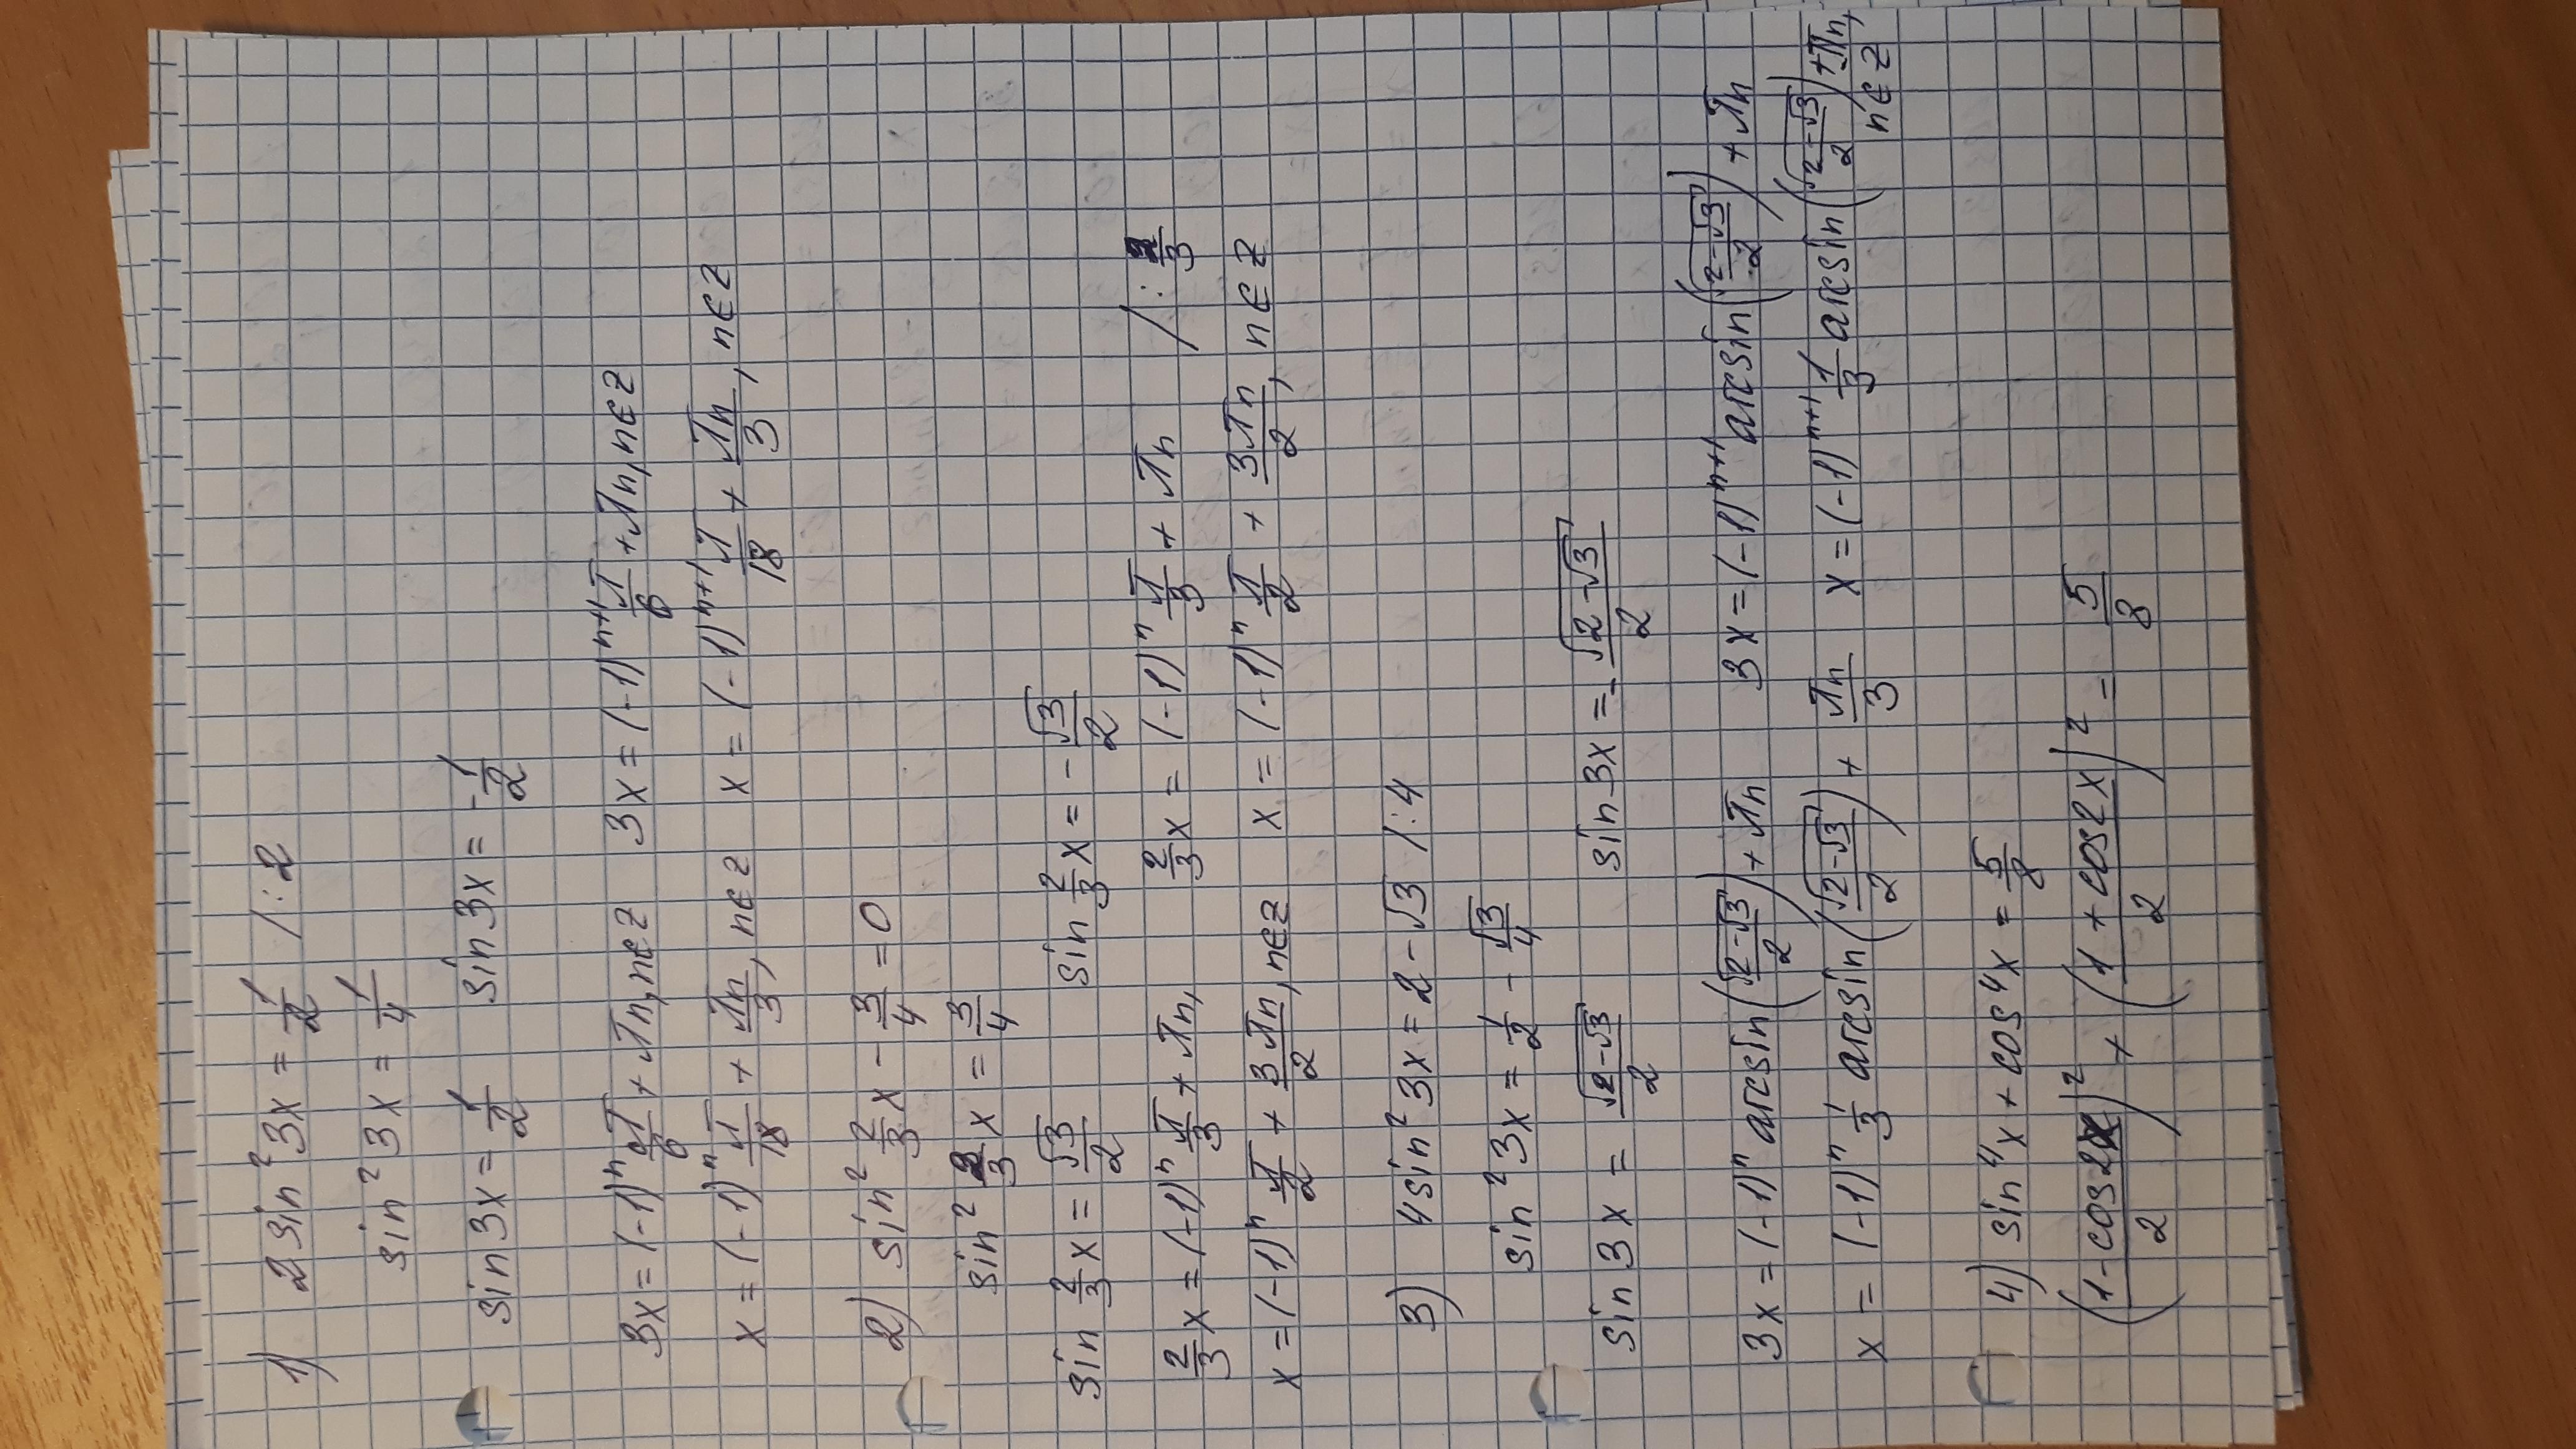 1) 2 sin² 3x = 1/2 /:2
sin² 3x = 1/4
sin 3x = 1/2 sin 3x = -1/2
3x = (-1)ⁿ π/6 + πn, n∈z 3x = (-1)ⁿ⁺¹ π/6 + πn, n∈z
x = (-1)ⁿ π/18 + πn/3, n∈z x = (-1)ⁿ⁺¹ π/18 + πn/3, n∈z
2) sin² 2/3 x - 3/4 = 0
sin² 2/3 x = 3/4
sin 2/3 x = √3/2 sin 2/3 x = -√3/2
2/3 x = (-1)ⁿ π/3 + πn, 2/3 x = (-1)ⁿ π/3 + πn /: 2/3
x = (-1)ⁿ π/2 + 3πn/2, n∈z x = (-1)ⁿ π/2 + 3πn/2, n∈z
3) 4 sin² 3x = 2 - √3 /:4
sin² 3x = 1/2 - √3/4
sin 3x = √(2-√3)/2 sin 3x = -√(2-√3)/2
3x = (-1)ⁿ arcsin(√(2-√3)/2) + πn 3x = (-1)ⁿ⁺¹ arcsin(√(2-√3)/2) + πn
x = (-1)ⁿ 1/3 arcsin(√(2-√3)/2) + πn/3 x = (-1)ⁿ⁺¹ 1/3 arcsin(√(2-√3)/2) + πn,
n∈z
4) sin⁴x + cos⁴x = 5/8
((1-cos2x)/2)² + ((1+cos2x)/2)² = 5/8